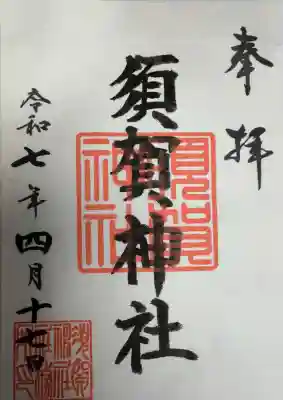 奉拝
須賀神社
須賀神社
令和七年四月十七日